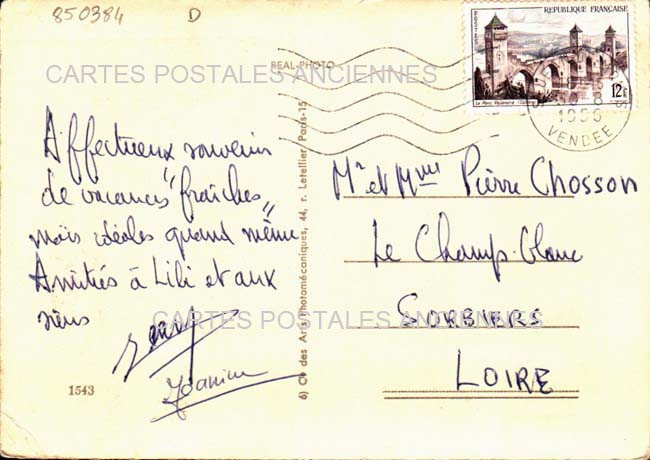 850384 D
REAL-PHOTO
CARTES POSTALES ANCIENNES
REPUBLIQUE FRANÇAISE
12F
Le Pont Valentré (Cahors)
1956
VENDEE
Affectueux souvenirs
de vacances "fraîches"
mais idéales quand même
Amitiés à Lili et aux
siens
1543
6) Cie des Arts Photomécaniques, 44, r. Letellier, Paris-15
Mr et Mme Pierre Chosson
Le Champ-blanc
SORBIERS
LOIRE
CARTES POSTALES ANCIENNES